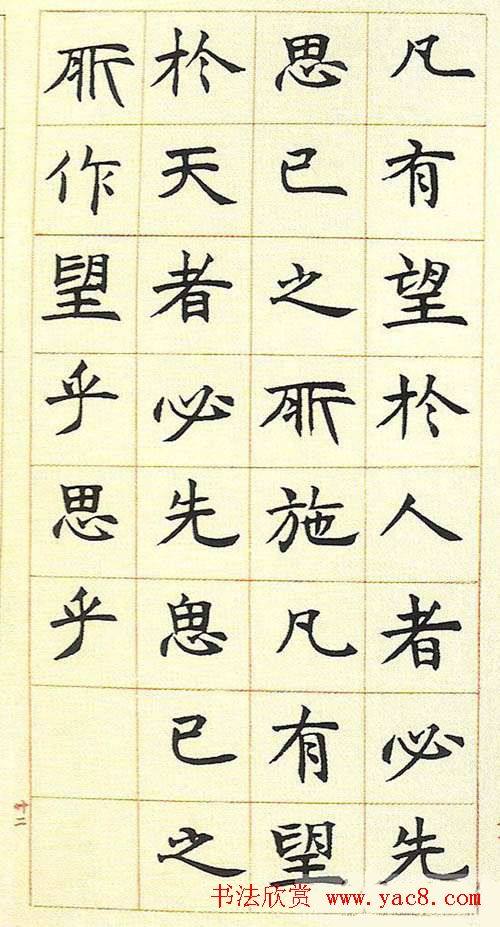 凡有望於人者必先
思己之所施凡有望
於天者必先思己之
所作望乎思乎
十二
书法欣赏 www.yac8.com